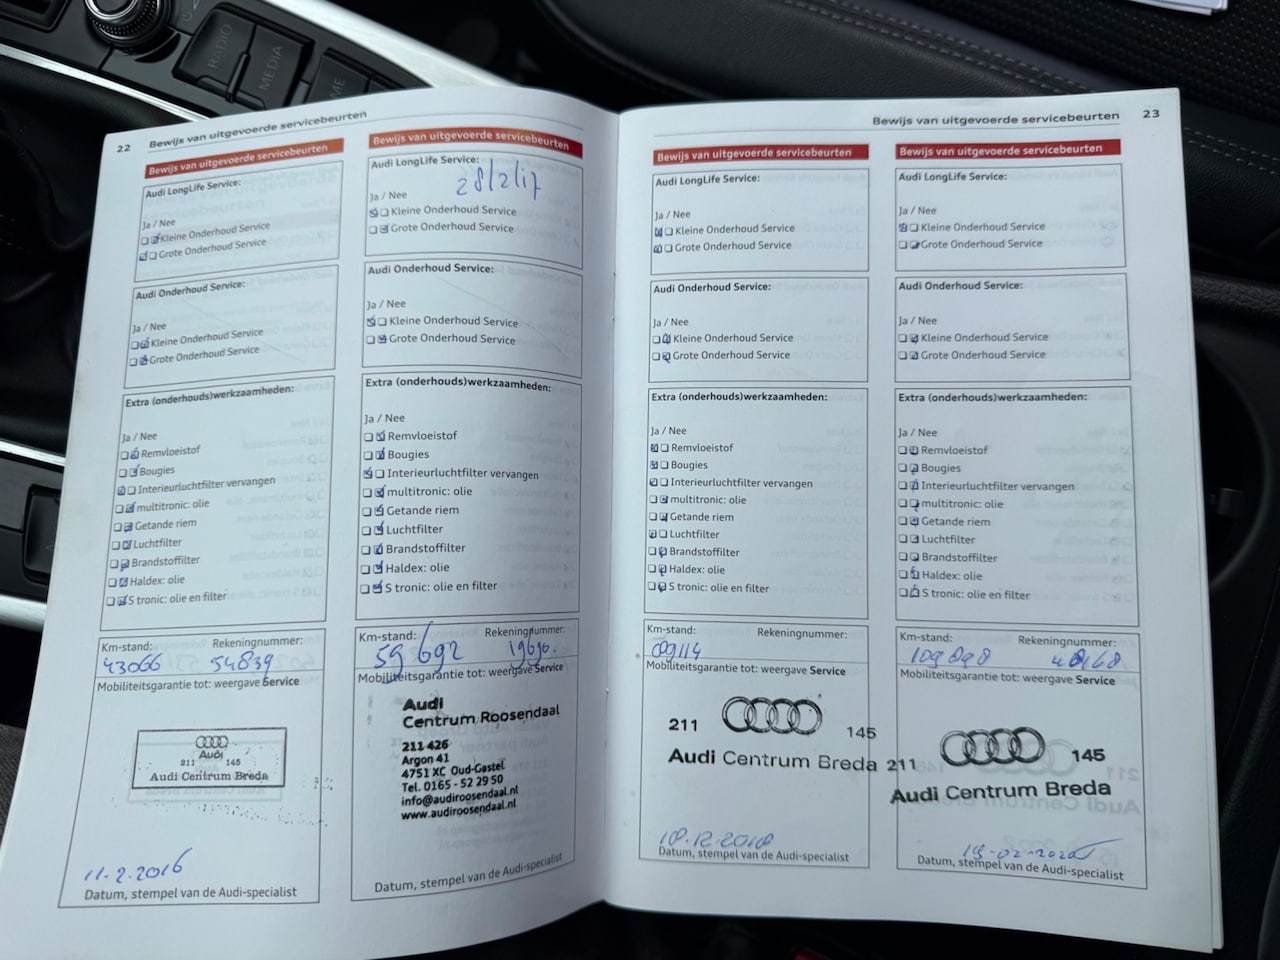 RADIO
MEDIA
22 Bewijs van uitgevoerde servicebeurten
Bewijs van uitgevoerde servicebeurten
Audi LongLife Service:
Ja / Nee
Kleine Onderhoud Service
Grote Onderhoud Service
Audi Onderhoud Service:
Ja / Nee
Kleine Onderhoud Service
Grote Onderhoud Service
Extra (onderhouds)werkzaamheden:
Ja / Nee
Remvloeistof
Bougies
Interieurluchtfilter vervangen
multitronic: olie
Getande riem
Luchtfilter
Brandstoffilter
Haldex: olie
S tronic: olie en filter
Km-stand: Rekeningnummer:
43066 54839
Mobiliteitsgarantie tot: weergave Service
Audi
211 145
Audi Centrum Breda
11-2-2016
Datum, stempel van de Audi-specialist
Bewijs van uitgevoerde servicebeurten
Audi LongLife Service:
28/2/17
Ja / Nee
Kleine Onderhoud Service
Grote Onderhoud Service
Audi Onderhoud Service:
Ja / Nee
Kleine Onderhoud Service
Grote Onderhoud Service
Extra (onderhouds)werkzaamheden:
Ja / Nee
Remvloeistof
Bougies
Interieurluchtfilter vervangen
multitronic: olie
Getande riem
Luchtfilter
Brandstoffilter
Haldex: olie
S tronic: olie en filter
Km-stand: Rekeningnummer:
59692 19690.
Mobiliteitsgarantie tot: weergave Service
Audi
Centrum Roosendaal
211 426
Argon 41
4751 XC Oud-Gastel
Tel. 0165 - 52 29 50
info@audiroosendaal.nl
www.audiroosendaal.nl
Datum, stempel van de Audi-specialist
Bewijs van uitgevoerde servicebeurten 23
Bewijs van uitgevoerde servicebeurten
Audi LongLife Service:
Ja / Nee
Kleine Onderhoud Service
Grote Onderhoud Service
Audi Onderhoud Service:
Ja / Nee
Kleine Onderhoud Service
Grote Onderhoud Service
Extra (onderhouds)werkzaamheden:
Ja / Nee
Remvloeistof
Bougies
Interieurluchtfilter vervangen
multitronic: olie
Getande riem
Luchtfilter
Brandstoffilter
Haldex: olie
S tronic: olie en filter
Km-stand: Rekeningnummer:
Mobiliteitsgarantie tot: weergave Service
211 145
Audi Centrum Breda
10-12-2018
Datum, stempel van de Audi-specialist
Bewijs van uitgevoerde servicebeurten
Audi LongLife Service:
Ja / Nee
Kleine Onderhoud Service
Grote Onderhoud Service
Audi Onderhoud Service:
Ja / Nee
Kleine Onderhoud Service
Grote Onderhoud Service
Extra (onderhouds)werkzaamheden:
Ja / Nee
Remvloeistof
Bougies
Interieurluchtfilter vervangen
multitronic: olie
Getande riem
Luchtfilter
Brandstoffilter
Haldex: olie
S tronic: olie en filter
Km-stand: Rekeningnummer:
Mobiliteitsgarantie tot: weergave Service
211 145
Audi Centrum Breda
Datum, stempel van de Audi-specialist